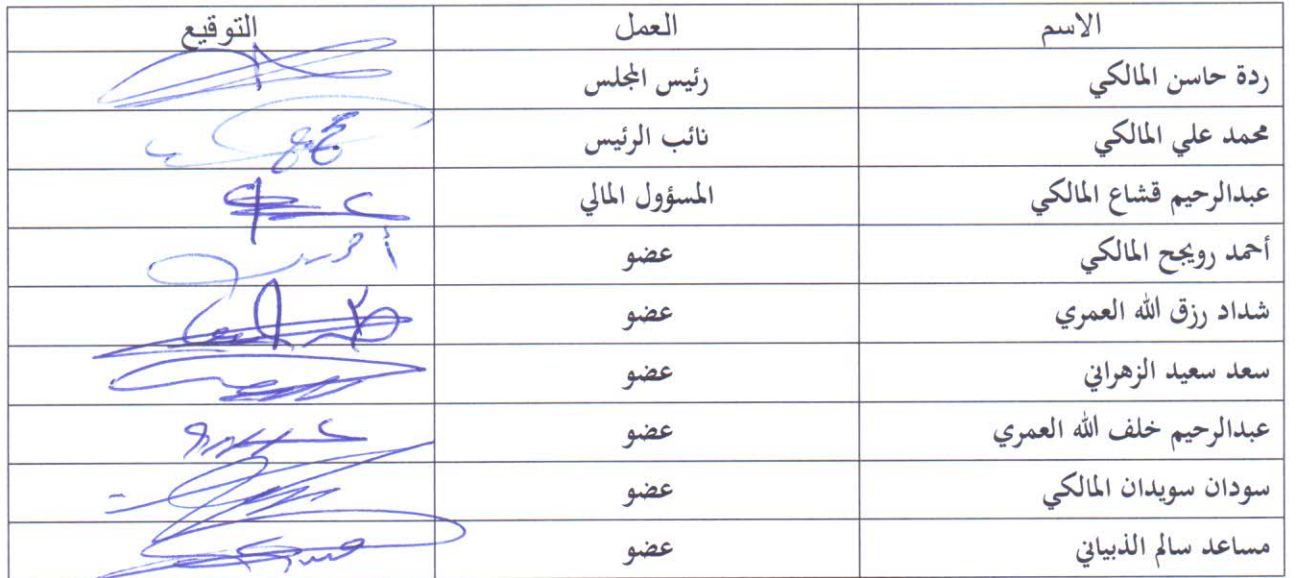 الاسم العمل التوقيع
ردة حاسن المالكي رئيس المجلس
محمد علي المالكي نائب الرئيس
عبدالرحيم قشاع المالكي المسؤول المالي
أحمد رويجح المالكي عضو
شداد رزق الله العمري عضو
سعد سعيد الزهراني عضو
عبدالرحيم خلف الله العمري عضو
سودان سويدان المالكي عضو
مساعد سالم الذبياني عضو